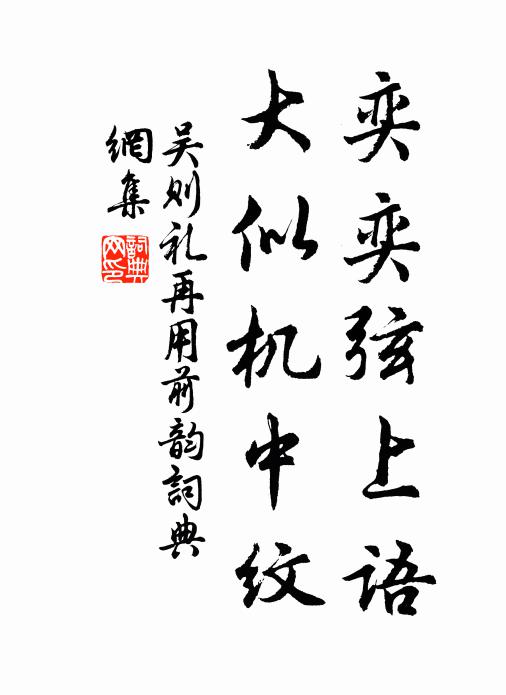 奕奕弦上语
大似机中纹
吴则礼再用前韵词典
網集
詞典網印